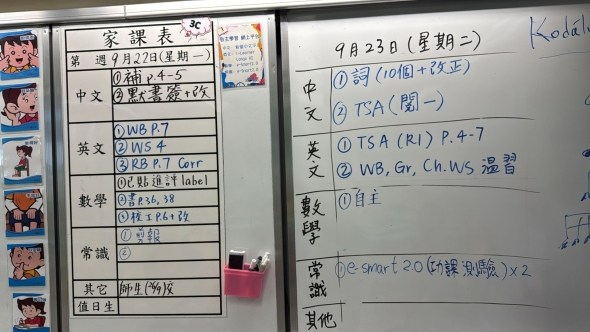 家課表
3C
第 週 9月22日(星期一)
中文
①補 p.4-5
②默書簽+改
英文
① WB P.7
② WS 4
③ RB P.7 Corr
數學
①已貼進評label
②書P.36, 38
常識
① 剪報
②
其它
值日生
9月23日(星期二)
Kodal
中文
① 詞(10個+改正)
② TSA (閱一)
英文
① TSA (R1) P.4-7
② WB, Gr, Ch.WS 溫習
數學
① 自主
常識
① e-smart 2.0 (功課測驗) x 2
其他